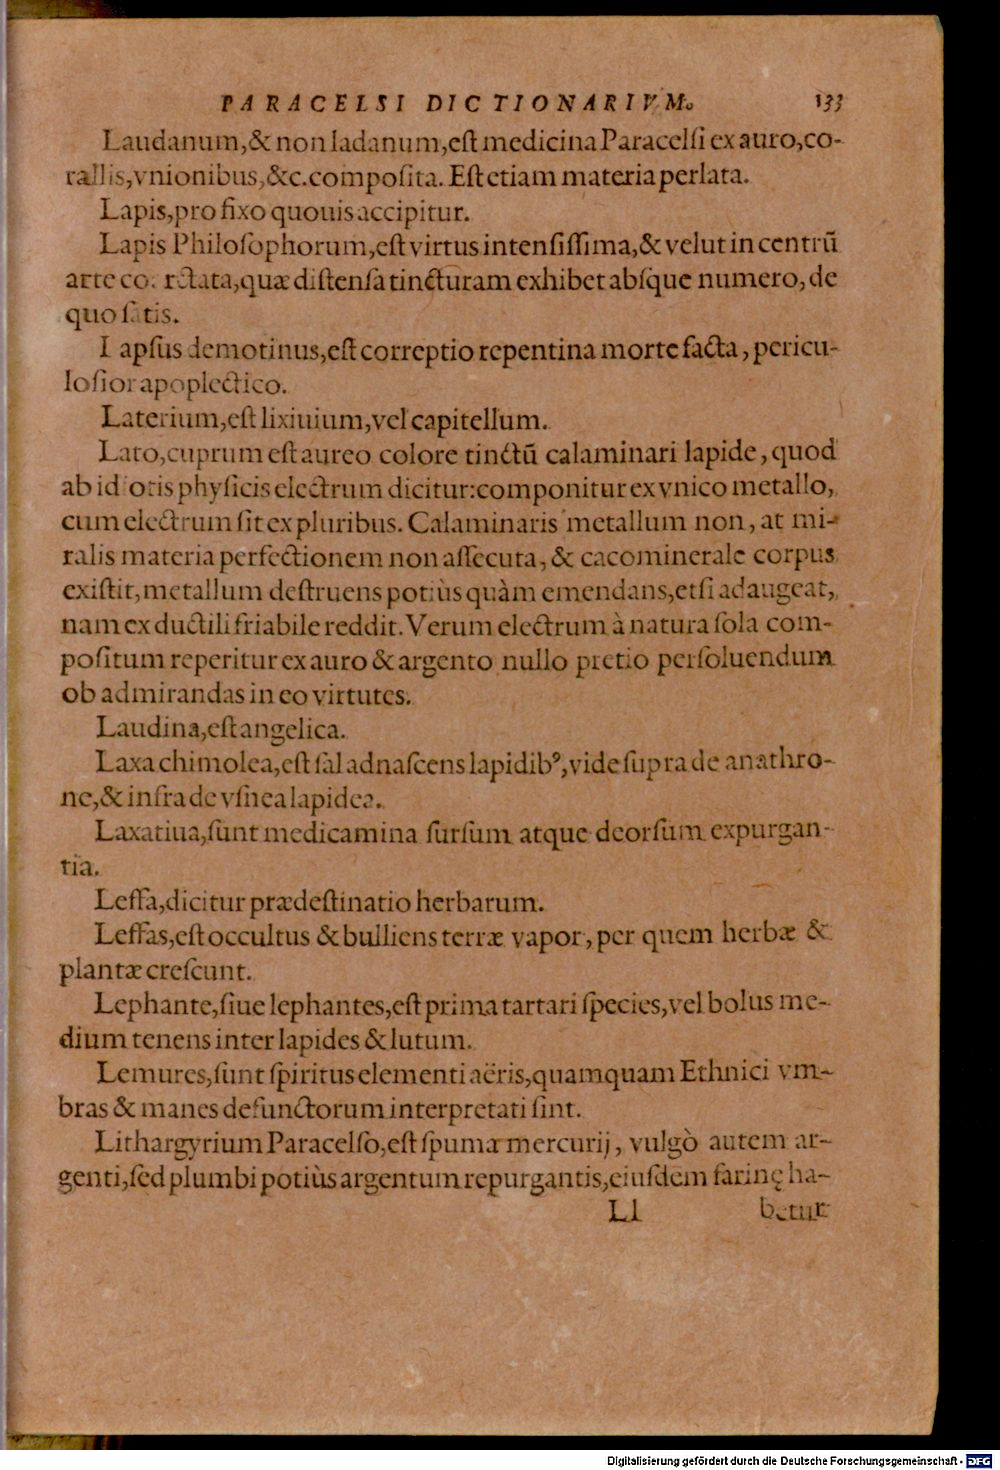 PARACELSI DICTIONARIVM. 133
Laudanum,& non ladanum,eſt medicina Paracelſi ex auro,co-
rallis,vnionibus,&c.compoſita. Eſt etiam materia perlata.
Lapis,pro fixo quouis accipitur.
Lapis Philoſophorum,eſt virtus intenſiſſima,& velut in centrũ
arte coarctata,quæ diſtenſa tincturam exhibet abſque numero, de
quo ſatis.
Lapſus demotinus,eſt correptio repentina morte facta, pericu-
loſior apoplectico.
Laterium,eſt lixiuium,vel capitellum.
Lato,cuprum eſt aureo colore tinctũ calaminari lapide, quod
ab idiotis phyſicis electrum dicitur:componitur ex vnico metallo,
cum electrum ſit ex pluribus. Calaminaris metallum non, at mi-
ralis materia perfectionem non aſſecuta, & cacominerale corpus
exiſtit, metallum deſtruens potiùs quàm emendans,etſi adaugeat,
nam ex ductili friabile reddit. Verum electrum à natura ſola com-
poſitum reperitur ex auro & argento nullo pretio perſoluendum
ob admirandas in eo virtutes.
Laudina,eſt angelica.
Laxa chimolea,eſt ſal adnaſcens lapidibꝰ,vide ſupra de anathro-
ne,& infra de vſnea lapidea.
Laxatiua,ſunt medicamina ſurſum atque deorſum expurgan-
tia.
Leffa,dicitur prædeſtinatio herbarum.
Leffas,eſt occultus & bulliens terræ vapor, per quem herbæ &
plantæ creſcunt.
Lephante,ſiue lephantes,eſt prima tartari ſpecies,vel bolus me-
dium tenens inter lapides & lutum.
Lemures,ſunt ſpiritus elementi aëris,quamquam Ethnici vm-
bras & manes defunctorum interpretati ſint.
Lithargyrium Paracelſo,eſt ſpuma mercurij, vulgò autem ar-
genti,ſed plumbi potiùs argentum repurgantis,eiuſdem farinę ha-
Ll betur
Digitalisierung gefördert durch die Deutsche Forschungsgemeinschaft - DFG